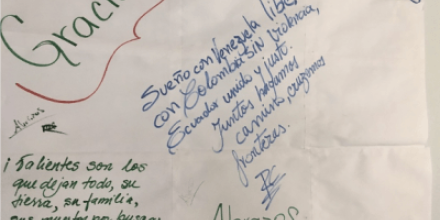 Graci
Sueño con Venezuela libre
con Colombia SIN Violencia,
Ecuador unido y justo.
Juntos hagamos
camino, crucemos
fronteras.
¡Valientes son los
que dejan todo, su
tierra, su familia,
Abrazos